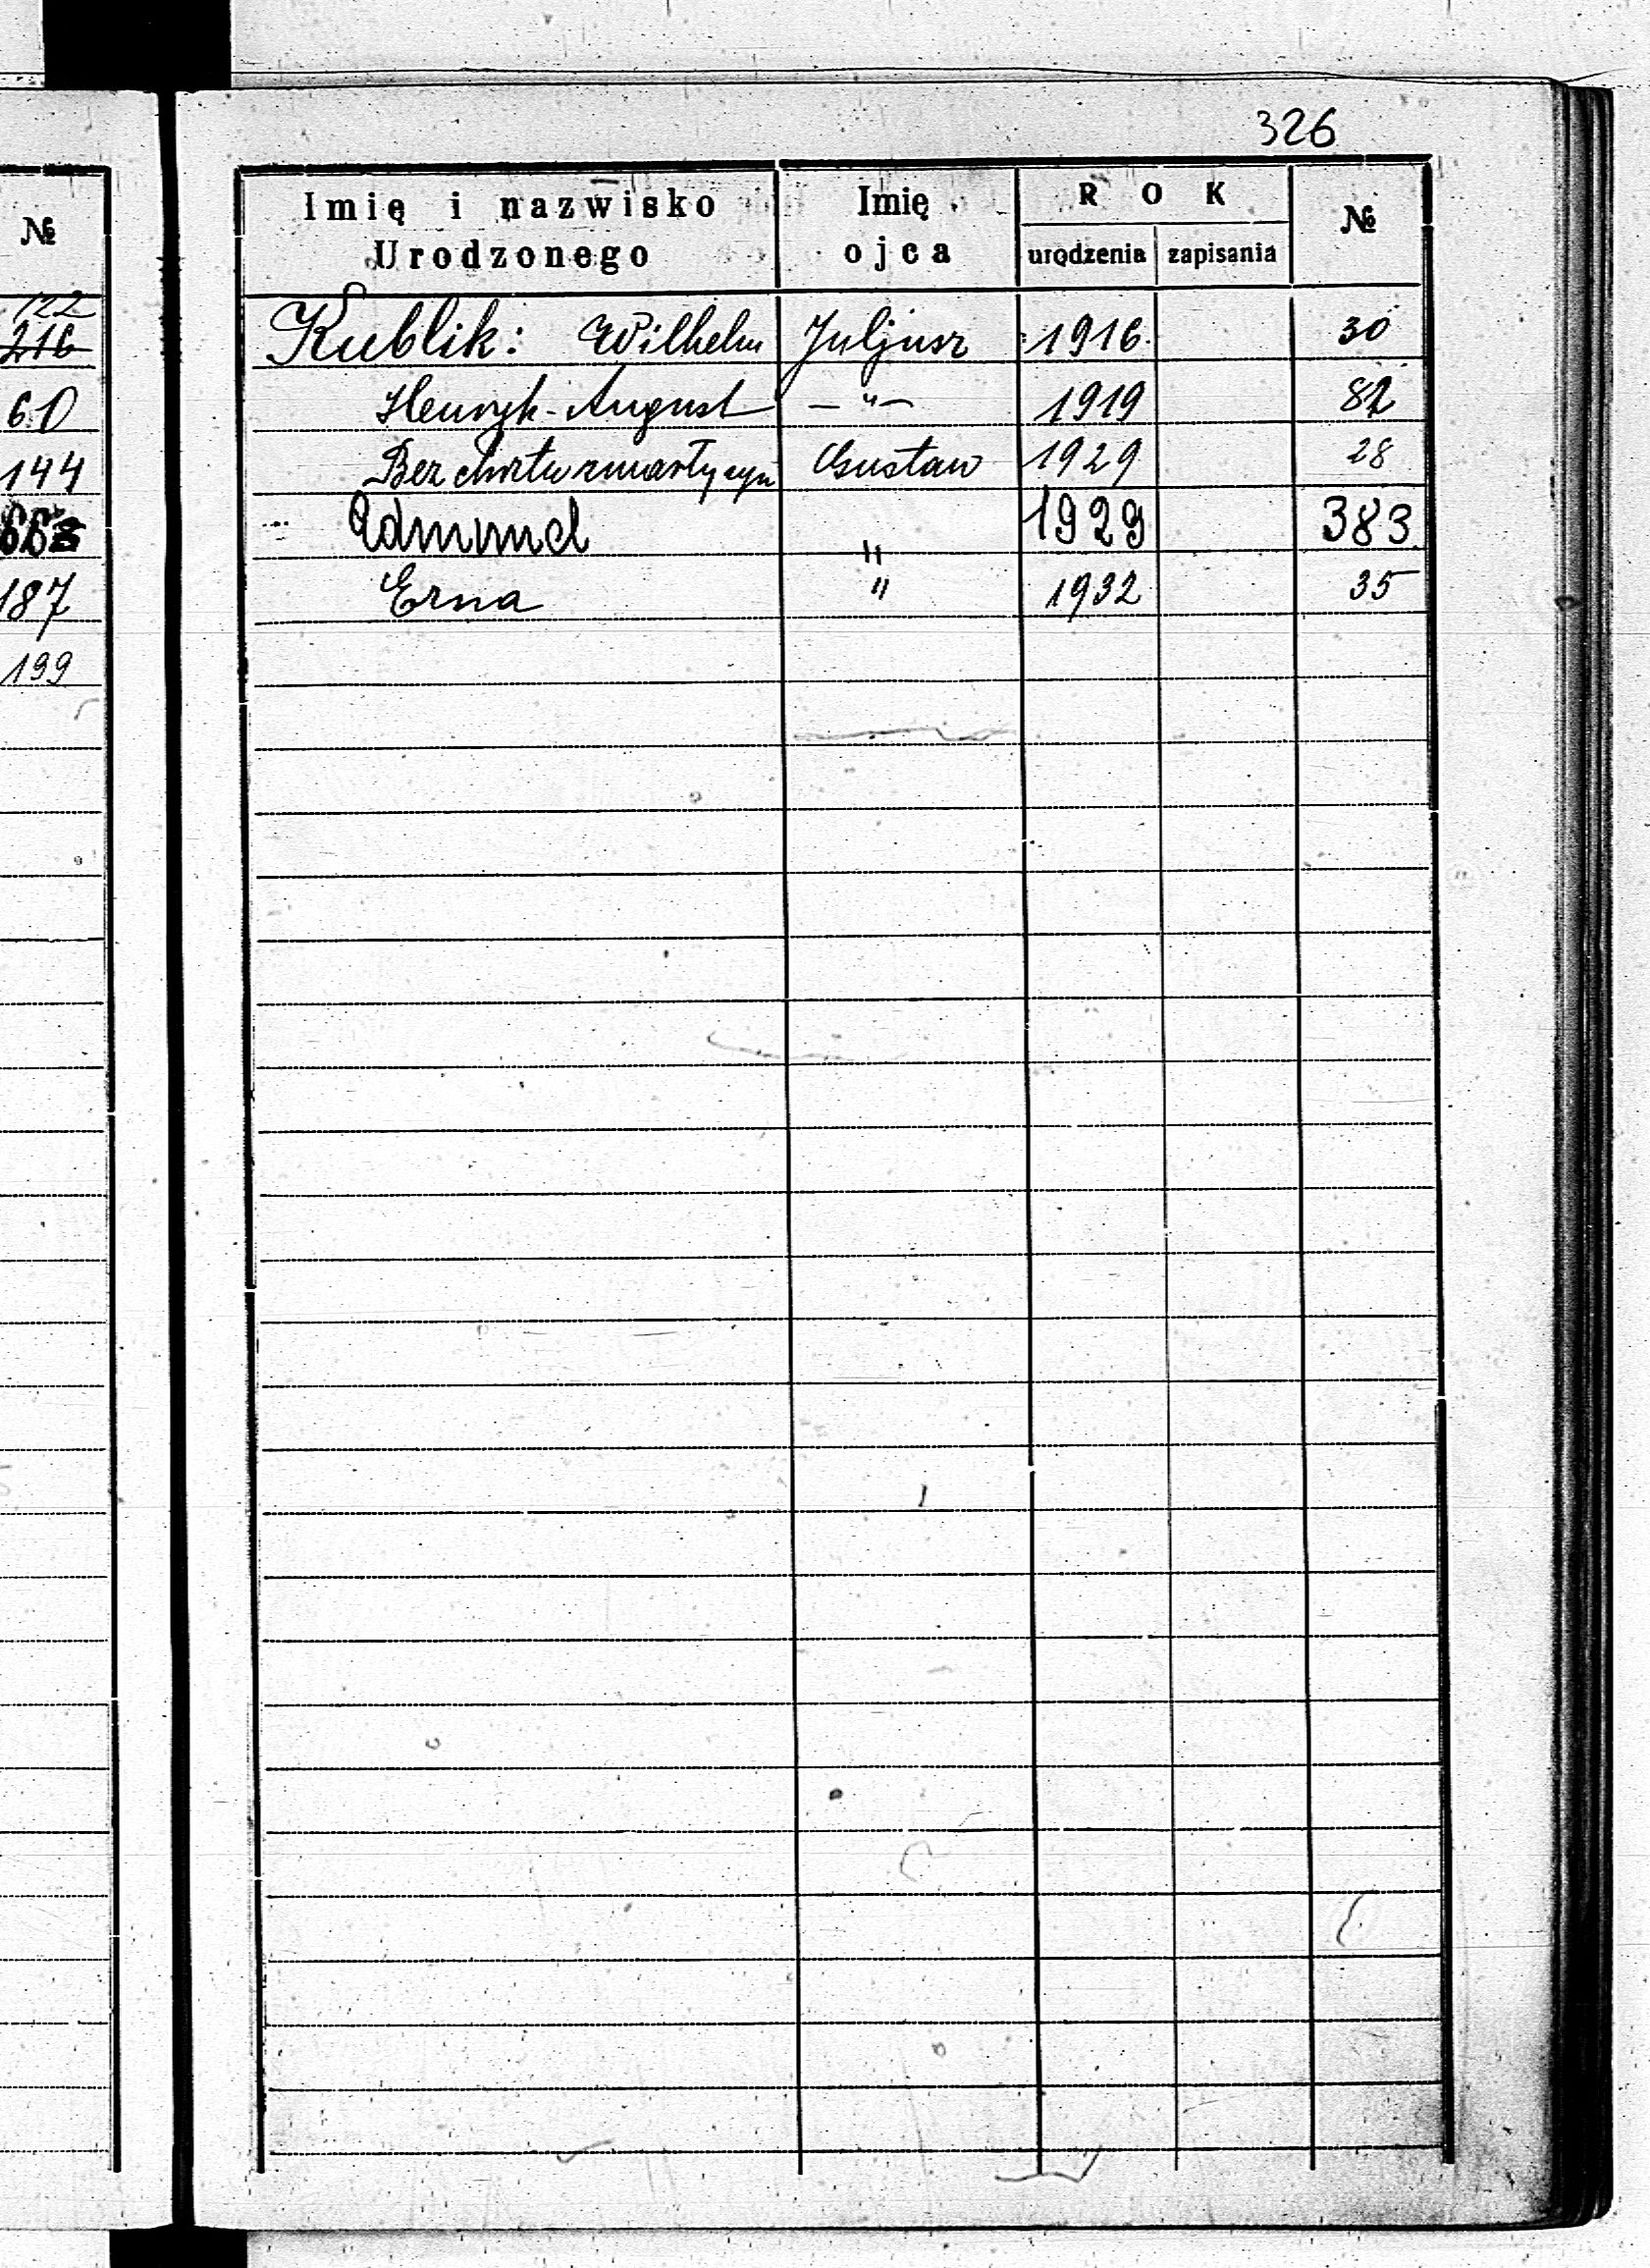 326
№
122
216
60
144
187
199
Imię i nazwisko Urodzonego
Imię ojca
ROK
urodzenia
zapisania
№
Kublik: Wilhelm Juljusz 1916 30
Henryk-August —"— 1919 82
Bez chrztu zmarły syn Gustaw 1929 28
Edmund " 1929 383
Erna " 1932 35